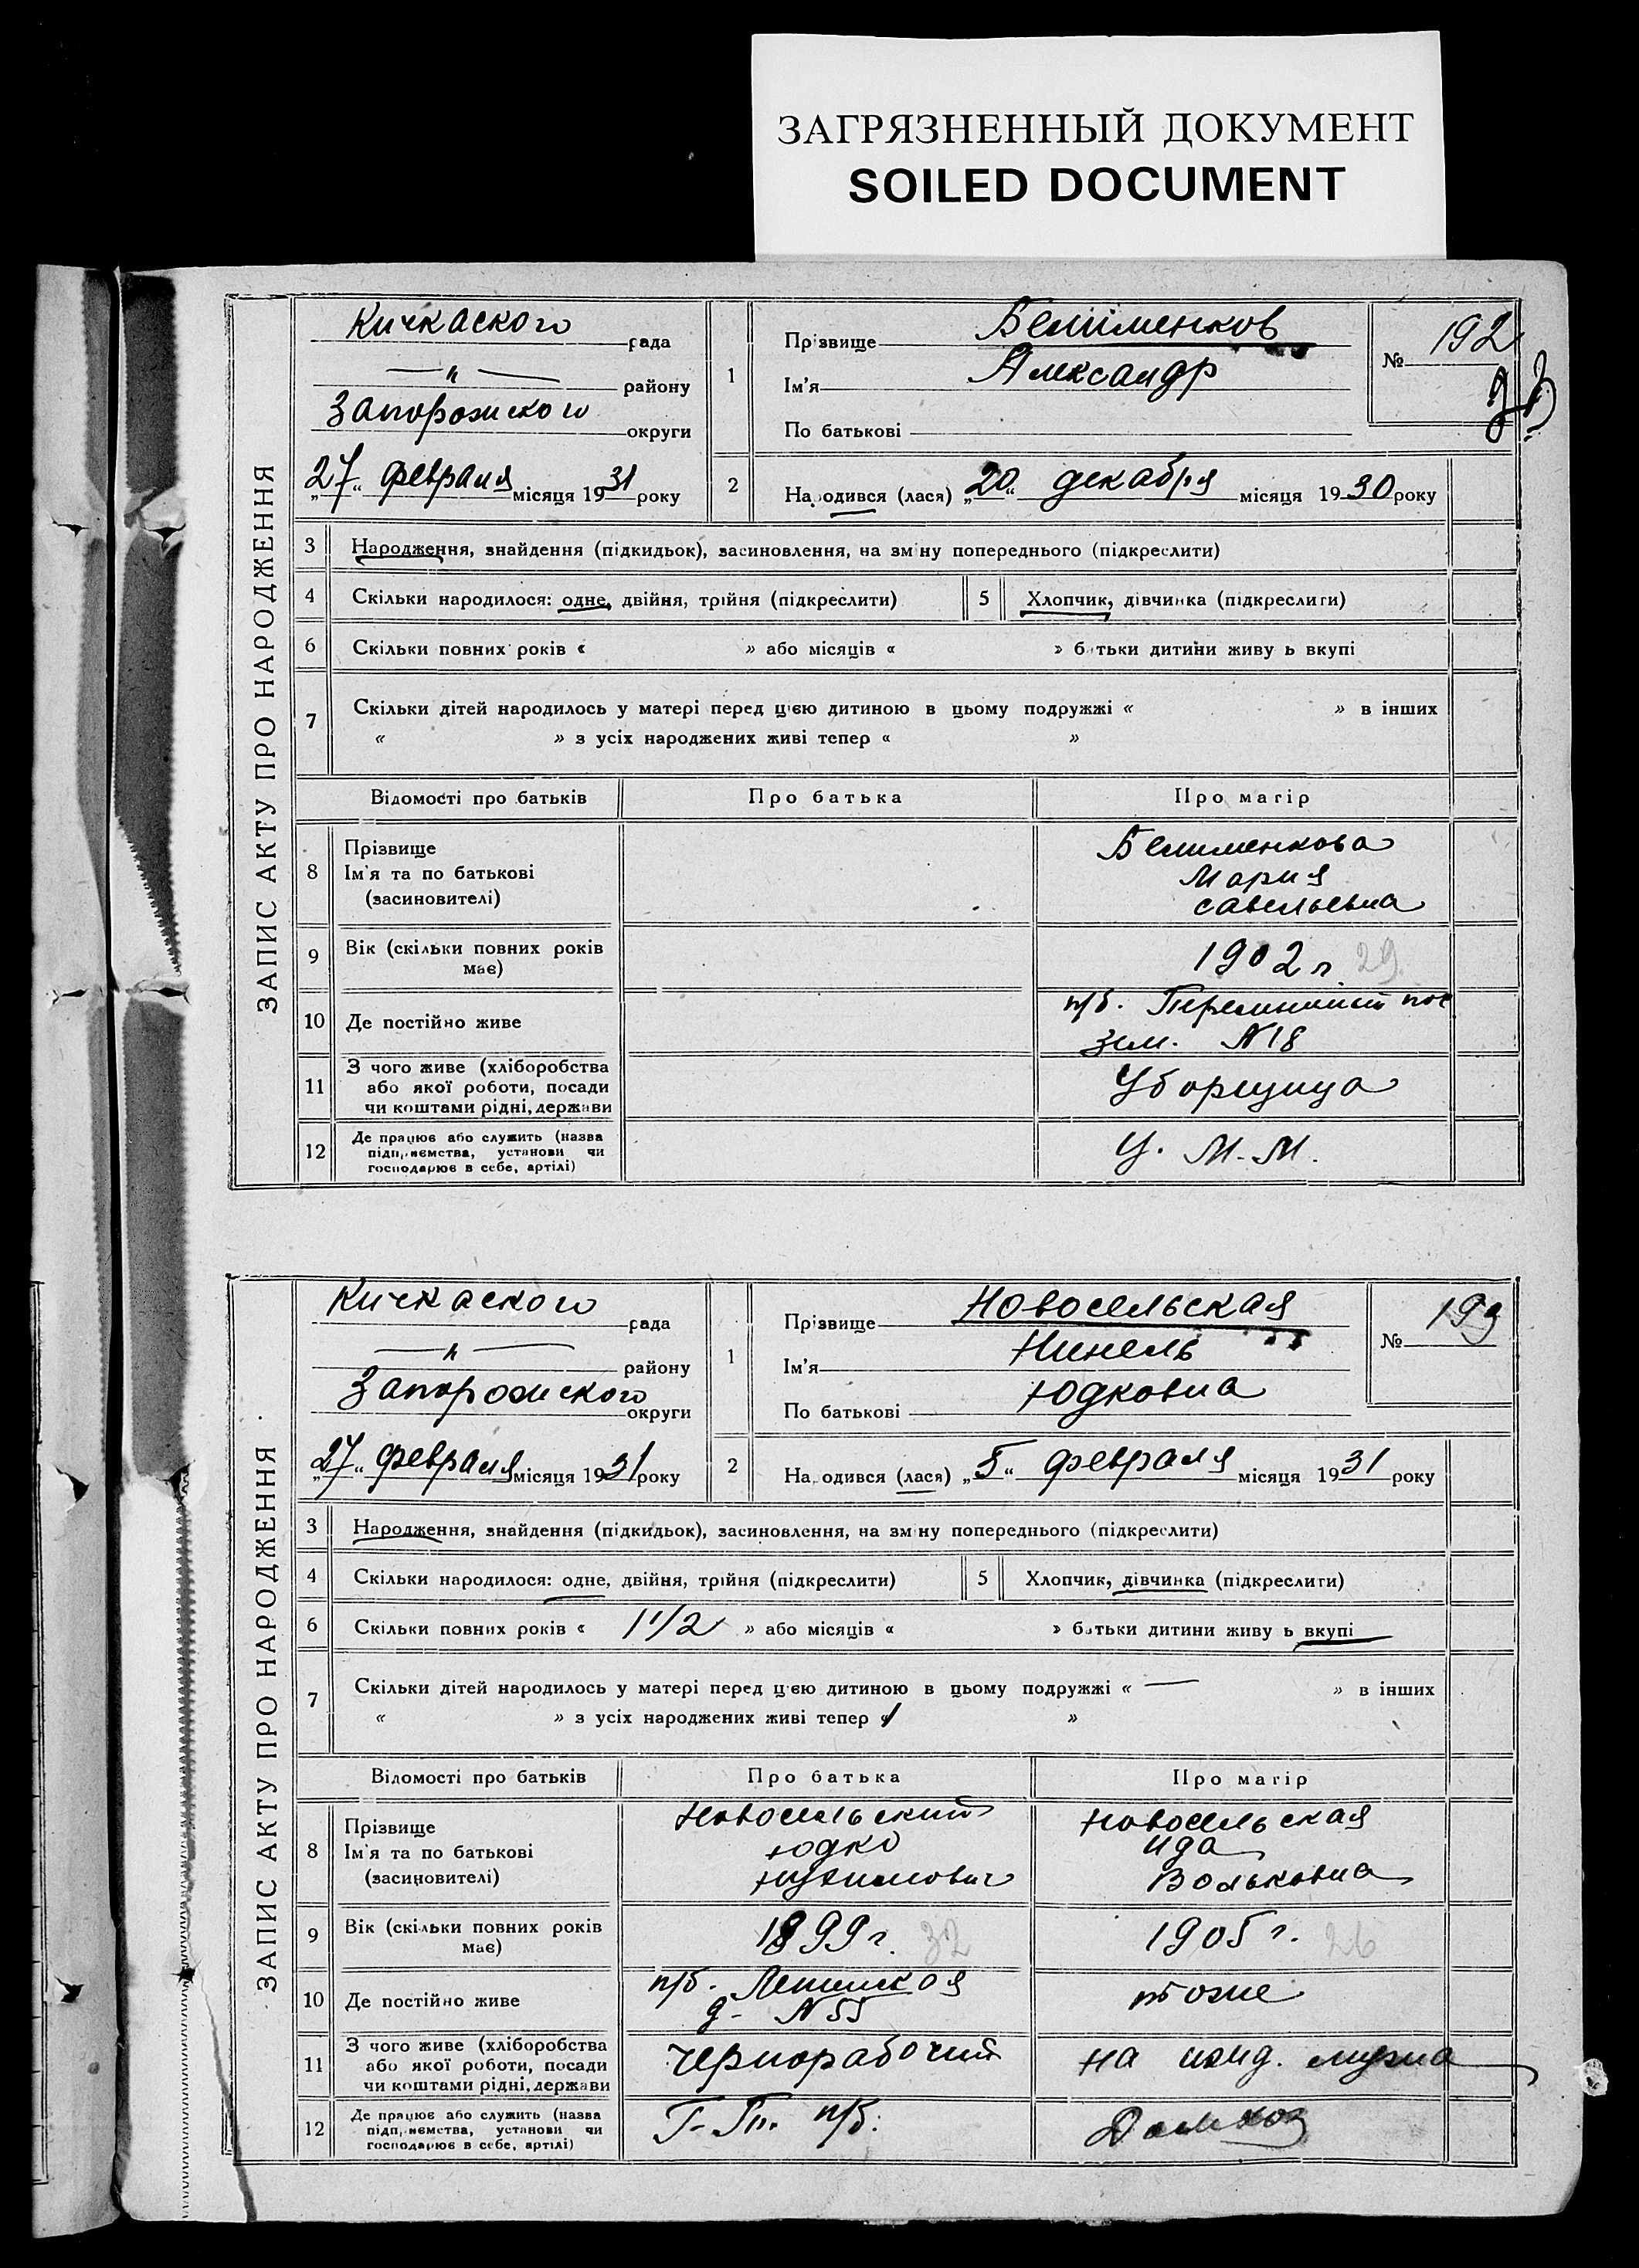 ЗАГРЯЗНЕННЫЙ ДОКУМЕНТ
SOILED DOCUMENT
ЗАПИС АКТУ ПРО НАРОДЖЕННЯ
Кичкаского рада
—"— району
Запорожского округи
„27“ февраля місяця 1931 року
1
Прізвище Белименков
Ім'я Александр
По батькові
№ 192
2 Народився (лася) „20“ декабря місяця 1930 року
3 Народження, знайдення (підкидьок), засиновлення, на зміну попереднього (підкреслити)
4 Скільки народилося: одне, двійня, трійня (підкреслити) 5 Хлопчик, дівчинка (підкреслити)
6 Скільки повних років « » або місяців « » батьки дитини живуть вкупі
7 Скільки дітей народилось у матері перед цією дитиною в цьому подружжі « » в інших
« » з усіх народжених живі тепер « »
Відомості про батьків Про батька Про матір
8 Прізвище
Ім'я та по батькові
(засиновителі)
Белименкова
Мария
Савельевна
9 Вік (скільки повних років
має)
1902 г 29
10 Де постійно живе
п/б. пос
зем. N 18
11 З чого живе (хліборобства
або якої роботи, посади
чи коштами рідні, держави
Уборщица
12 Де працює або служить (назва
підприємства, установи чи
господарює в себе, артілі)
Ц. М. М.
ЗАПИС АКТУ ПРО НАРОДЖЕННЯ
Кичкаского рада
—"— району
Запорожского округи
„27“ февраля місяця 1931 року
1
Прізвище Новосельская
Ім'я Нинель
По батькові Юдковна
№ 193
2 Народився (лася) „5“ февраля місяця 1931 року
3 Народження, знайдення (підкидьок), засиновлення, на зміну попереднього (підкреслити)
4 Скільки народилося: одне, двійня, трійня (підкреслити) 5 Хлопчик, дівчинка (підкреслити)
6 Скільки повних років « 1 1/2 » або місяців « » батьки дитини живуть вкупі
7 Скільки дітей народилось у матері перед цією дитиною в цьому подружжі « — » в інших
« » з усіх народжених живі тепер « 1 »
Відомості про батьків Про батька Про матір
8 Прізвище
Ім'я та по батькові
(засиновителі)
Новосельский
Юдко
Новосельская
Ида
Вольковна
9 Вік (скільки повних років
має)
1899 г. 32
1905 г. 26
10 Де постійно живе
п/б. Ленинская
д. N 55
тоже
11 З чого живе (хліборобства
або якої роботи, посади
чи коштами рідні, держави
чернорабочий
на ижд. мужа
12 Де працює або служить (назва
підприємства, установи чи
господарює в себе, артілі)
п/б.
Домхоз